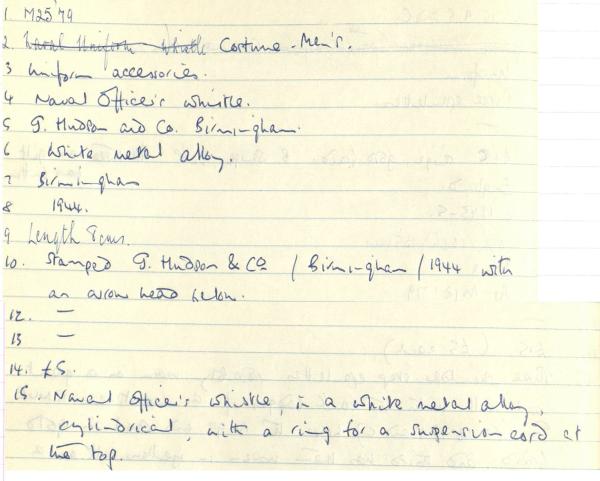 1 M25'79
2. Naval Uniform - Whistle Costume - Men's.
3 Uniform accessories.
4 Naval Officer's whistle.
5 J. Hudson and Co. Birmingham.
6 White metal alloy.
7 Birmingham
8 1944.
9 Length 8cms.
10. Stamped J. Hudson & Co / Birmingham / 1944 with
an arrow head below.
12. —
13 —
14. £5.
15. Naval Officer's whistle, in a white metal alloy,
cylindrical, with a ring for a suspension cord at
the top.